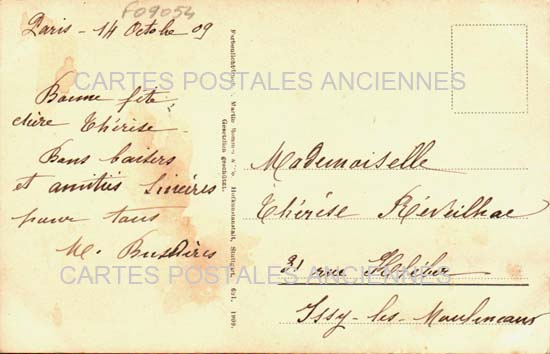 F09054
Paris - 14 Octobe 09
Bonne fête
chère Thérèse
Bons baisers
et amitiés sincères
pour tous
M.
Farbenlichtdruck Martin Rommel & Co. Hofkunstanstalt, Stuttgart. 691. 1909.
Gesetzlich geschützt.
Mademoiselle
Thérèse Réveilhac
21 rue Kléber
Issy-les-Moulineaux
CARTES POSTALES ANCIENNES
CARTES POSTALES ANCIENNES